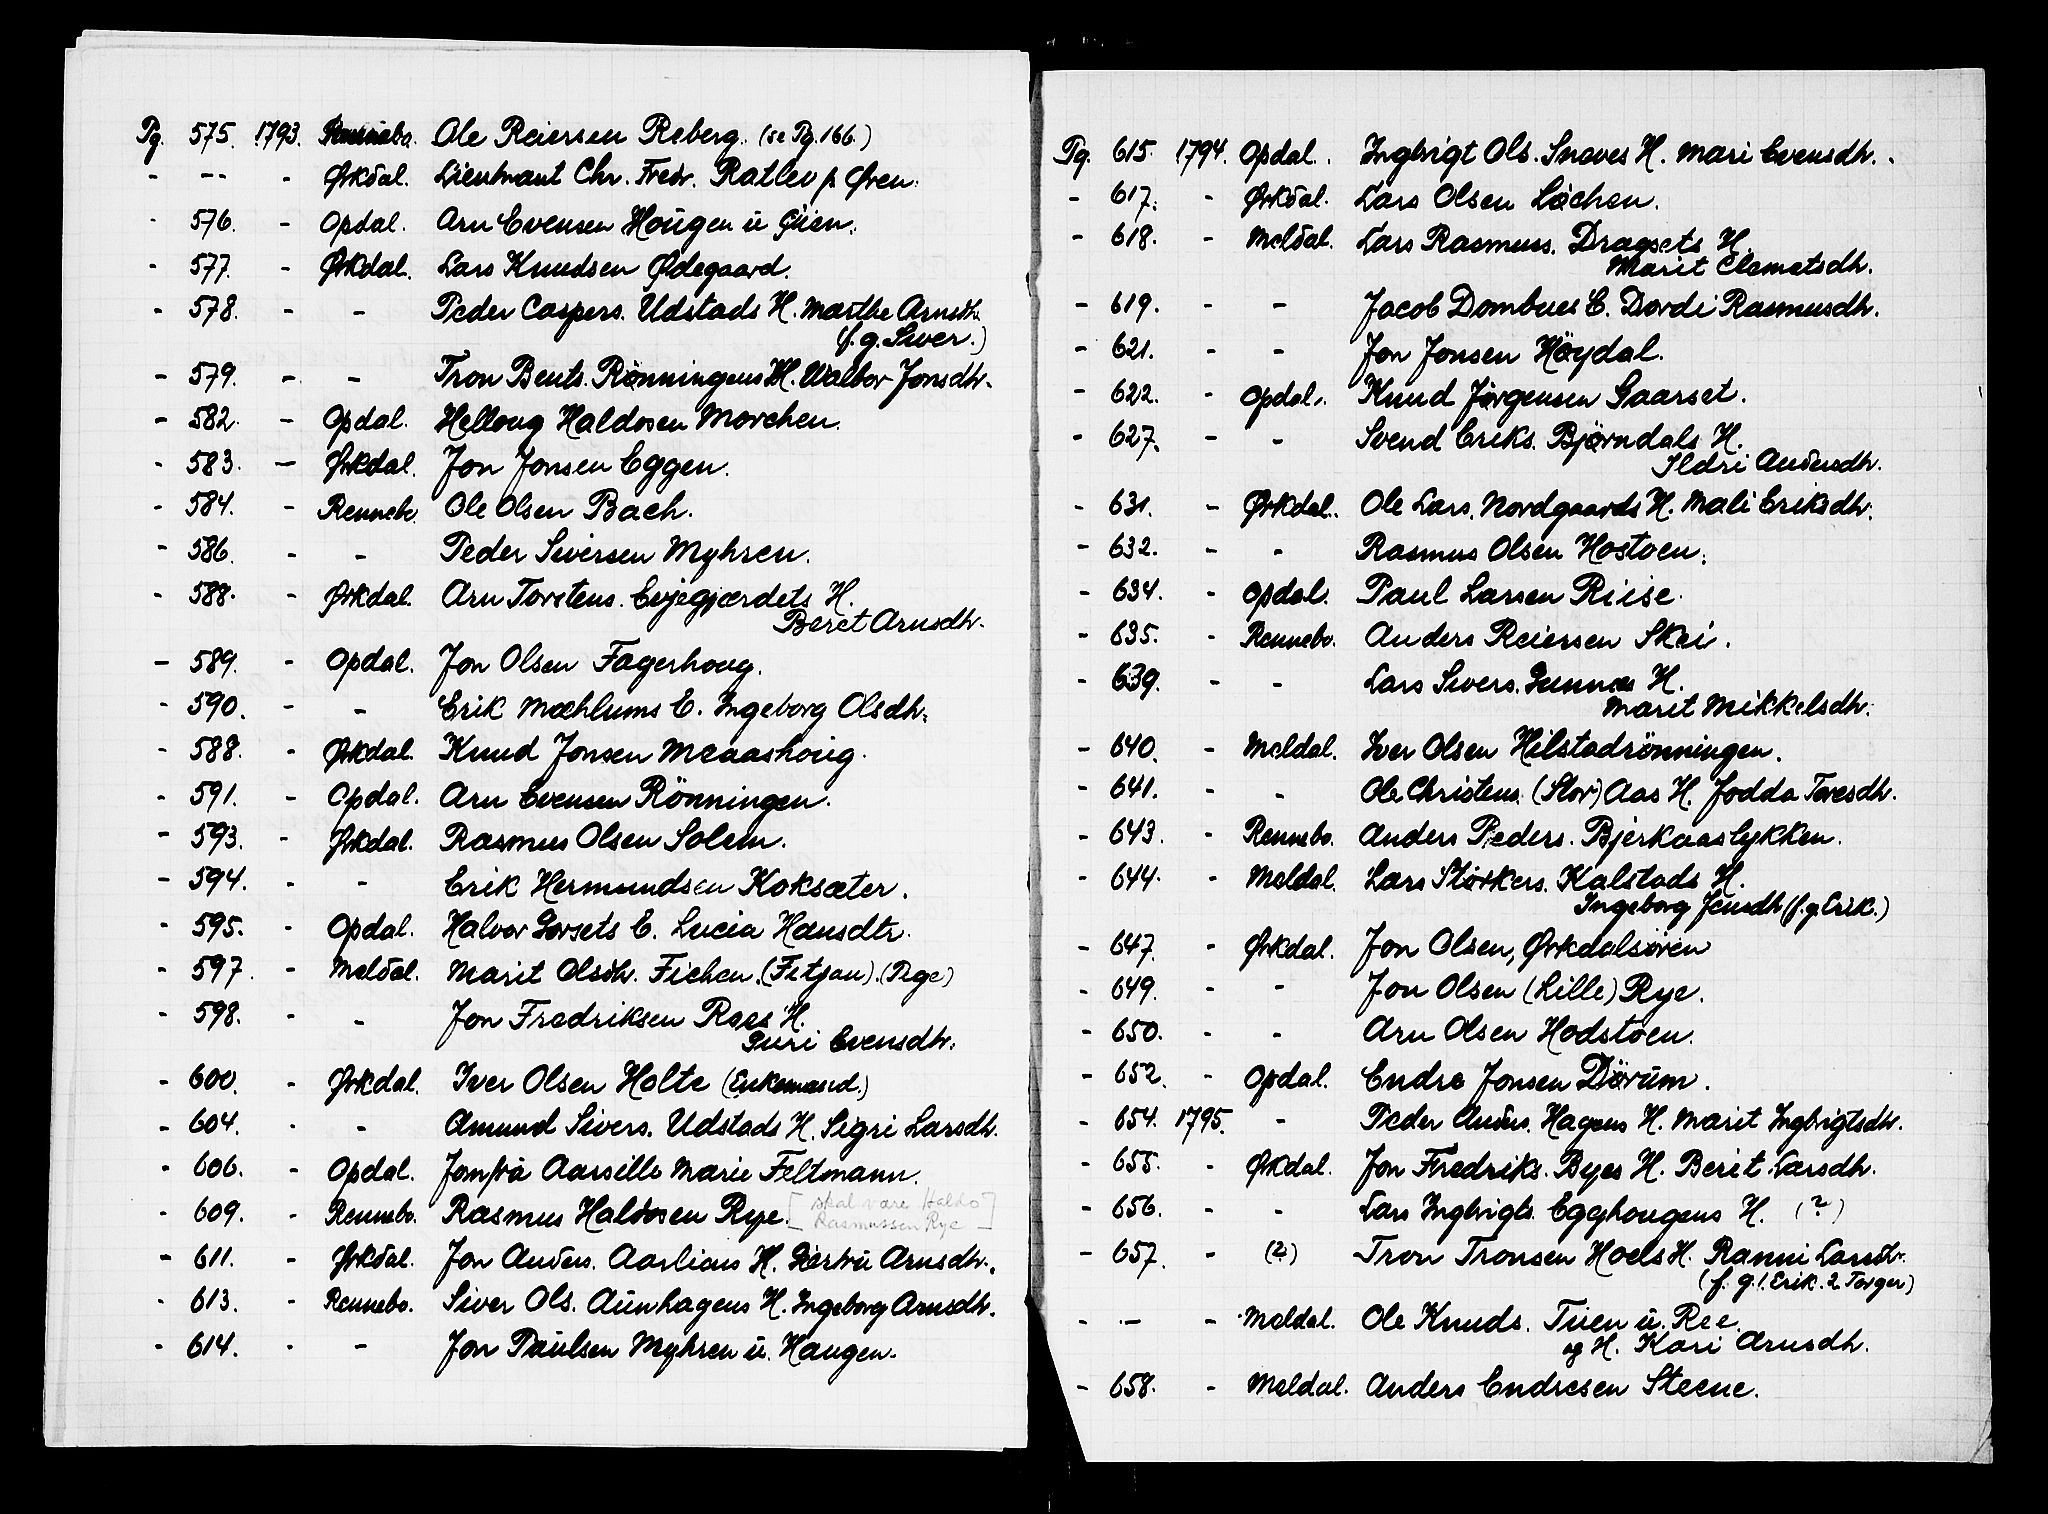 Pg. 575. 1793. Rennebo. Ole Reiersen Reberg. (se Pg. 166.)
- -- - Ørkdal. Lieutnant Chr. Fredr. Ratlev p Øren.
- 576. - Opdal. Arn Evensen Hougen ü Giien.
- 577. - Ørkdal. Lars Knudsen Ødegaard.
- 578. - - Peder Caspers. Udstads H. Marthe Arnsdtr.
(f. g. Siver.)
- 579. - - Tron Bents. Rønningens H. Walbor Jonsdtr.
- 582. - Opdal. Helloug Haldosen Morchen.
- 583. - Ørkdal. Jon Jonsen Eggen.
- 584. - Rennebo. Ole Olsen Bach.
- 586. - - Peder Siversen Myhren.
- 588. - Ørkdal. Arn Torstens. Evjegjærdets H.
Beret Arnsdtr.
- 589. - Opdal. Jon Olsen Fagerhoug.
- 590. - - Erik Mæhlums E. Ingeborg Olsdtr.
- 588. - Ørkdal. Knud Jonsen Meaashoug.
- 591. - Opdal. Arn Evensen Rönningen.
- 593. - Ørkdal. Rasmus Olsen Solem.
- 594. - - Erik Hermundsen Koksæter.
- 595. - Opdal. Halvor Gorsets E. Lucia Hansdtr.
- 597. - Meldal. Marit Olsdtr. Fichen. (Fitjan). (Pige)
- 598. - - Jon Fredriksen Roes H.
Guri Evensdtr.
- 600. - Ørkdal. Iver Olsen Holte (Enkemand.)
- 604. - - Amund Sivers. Udstads H. Sigri Larsdtr.
- 606. - Opdal. Jomfrü Aarsille Marie Feltmann.
- 609. - Rennebo. Rasmus Haldosen Rye. [skal være Haldo
Rasmussen Rye]
- 611. - Ørkdal. Jon Anders. Aarliens H. Giertrü Arnsdtr.
- 613. - Rennebo. Siver Ols. Aünhagens H. Ingeborg Arnsdtr.
- 614. - - Jon Paülsen Myhren ü. Haugen.
Pg. 615. 1794. Opdal. Ingbrigt Ols. Snoves H. Mari Evensdtr.
- 617. - Ørkdal. Lars Olsen Löchen.
- 618. - Meldal. Lars Rasmuss. Dragsets H.
Marit Clemetsdtr.
- 619. - - Jacob Dombues E. Dordi Rasmusdtr.
- 621. - - Jon Jonsen Höydal.
- 622. - Opdal. Knud Jørgensen Gaarset.
- 627. - - Svend Eriks. Bjørndals H.
Ildri Andersdtr.
- 631. - Ørkdal. Ole Lars. Nordgaards H. Mali Eriksdtr.
- 632. - - Rasmus Olsen Hostoen.
- 634. - Opdal. Paul Larsen Riise.
- 635. - Rennebo. Anders Reiersen Skei.
- 639. - - Lars Sivers. Gunnes H.
Marit Mikkelsdtr.
- 640. - Meldal. Iver Olsen Hilstadrönningen.
- 641. - - Ole Christens. (Stor) Aas H. Jodda Toresdtr.
- 643. - Rennebo. Anders Peders. Bjerkaaslykken.
- 644. - Meldal. Lars Størkers. Kalstads H.
Ingeborg Jensdtr (f. g. Erik.)
- 647. - Ørkdal. Jon Olsen, Ørkdalsören
- 649. - - Jon Olsen (Lille) Rye.
- 650. - - Arn Olsen Hodstoen.
- 652. - Opdal. Endre Jonsen Dörüm.
- 654. 1795. - Peder Anders. Hagens H. Marit Ingbrigtsdtr.
- 655. - Ørkdal. Jon Fredriks. Byes H. Berit Larsdtr.
- 656. - - Lars Ingbrigts. Egghougens H. (?)
- 657. - (?) Tron Tronsen Hoels H. Ranni Larsdtr.
(f. g. 1. Erik. 2 Torger)
- - - Meldal. Ole Knuds. Tüen ü. Ree
og H. Kari Arnsdtr.
- 658. - Meldal. Anders Endresen Steene.